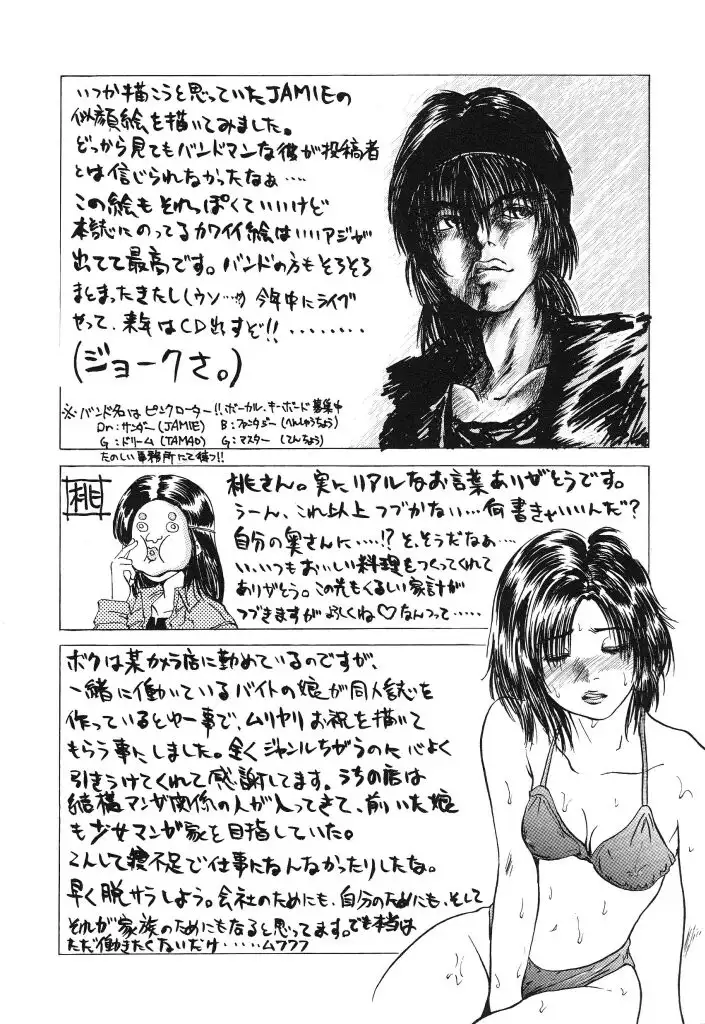 いつか描こうと思っていたJAMIEの
似顔絵を描いてみました。
どっから見てもバンドマンな彼が投稿者
とは信じられなかったなぁ‥‥
この絵もそれっぽくていいけど
本誌にのってるカワイイ絵はいいアジが
出てて最高です。バンドの方もそろそろ
まとまったきたし(ウソ…!?) 今年中にライブ
やって、来年はCD出すぞ!!・・・・・・・・
(ジョークさ。)
※バンド名はピンクローター!!ボーカル、キーボード募集中
Dr:サンダー(JAMIE) B:ファンタジー(へんしゅうちょう)
G:ドリーム(TAMAO) G:マスター(てんちょう)
たのしい事務所にて待つ!!
桃
桃さん。実にリアルなお言葉ありがとうです。
うーん、これ以上つづかない…何書きゃいいんだ?
自分の奥さんに‥‥!?そ、そうだなぁ…
い、いつもおいしい料理をつくってくれて
ありがとう。この先もくるしい家計が
つづきますがよろしくね♡なんつって‥‥‥
ボクは某カメラ店に勤めているのですが、
一緒に働いているバイトの娘が同人誌を
作っているとゆー事で、ムリヤリお祝を描いて
もらう事にしました。全くジャンルちがうのに心よく
引きうけてくれて感謝してます。うちの店は
結構マンガ関係の人が入ってきて、前いた娘
も少女マンガ家を目指していた。
こんして寝不足で仕事になんなかったりしたな。
早く脱サラしよう。会社のためにも、自分のためにも、そして
それが家族のためにもなると思ってます。でも本当は
ただ働きたくないだけ‥‥‥ムフフフ